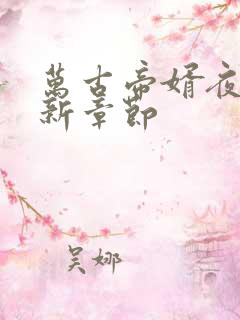 萬古帝婿夜
新章節
吳娜